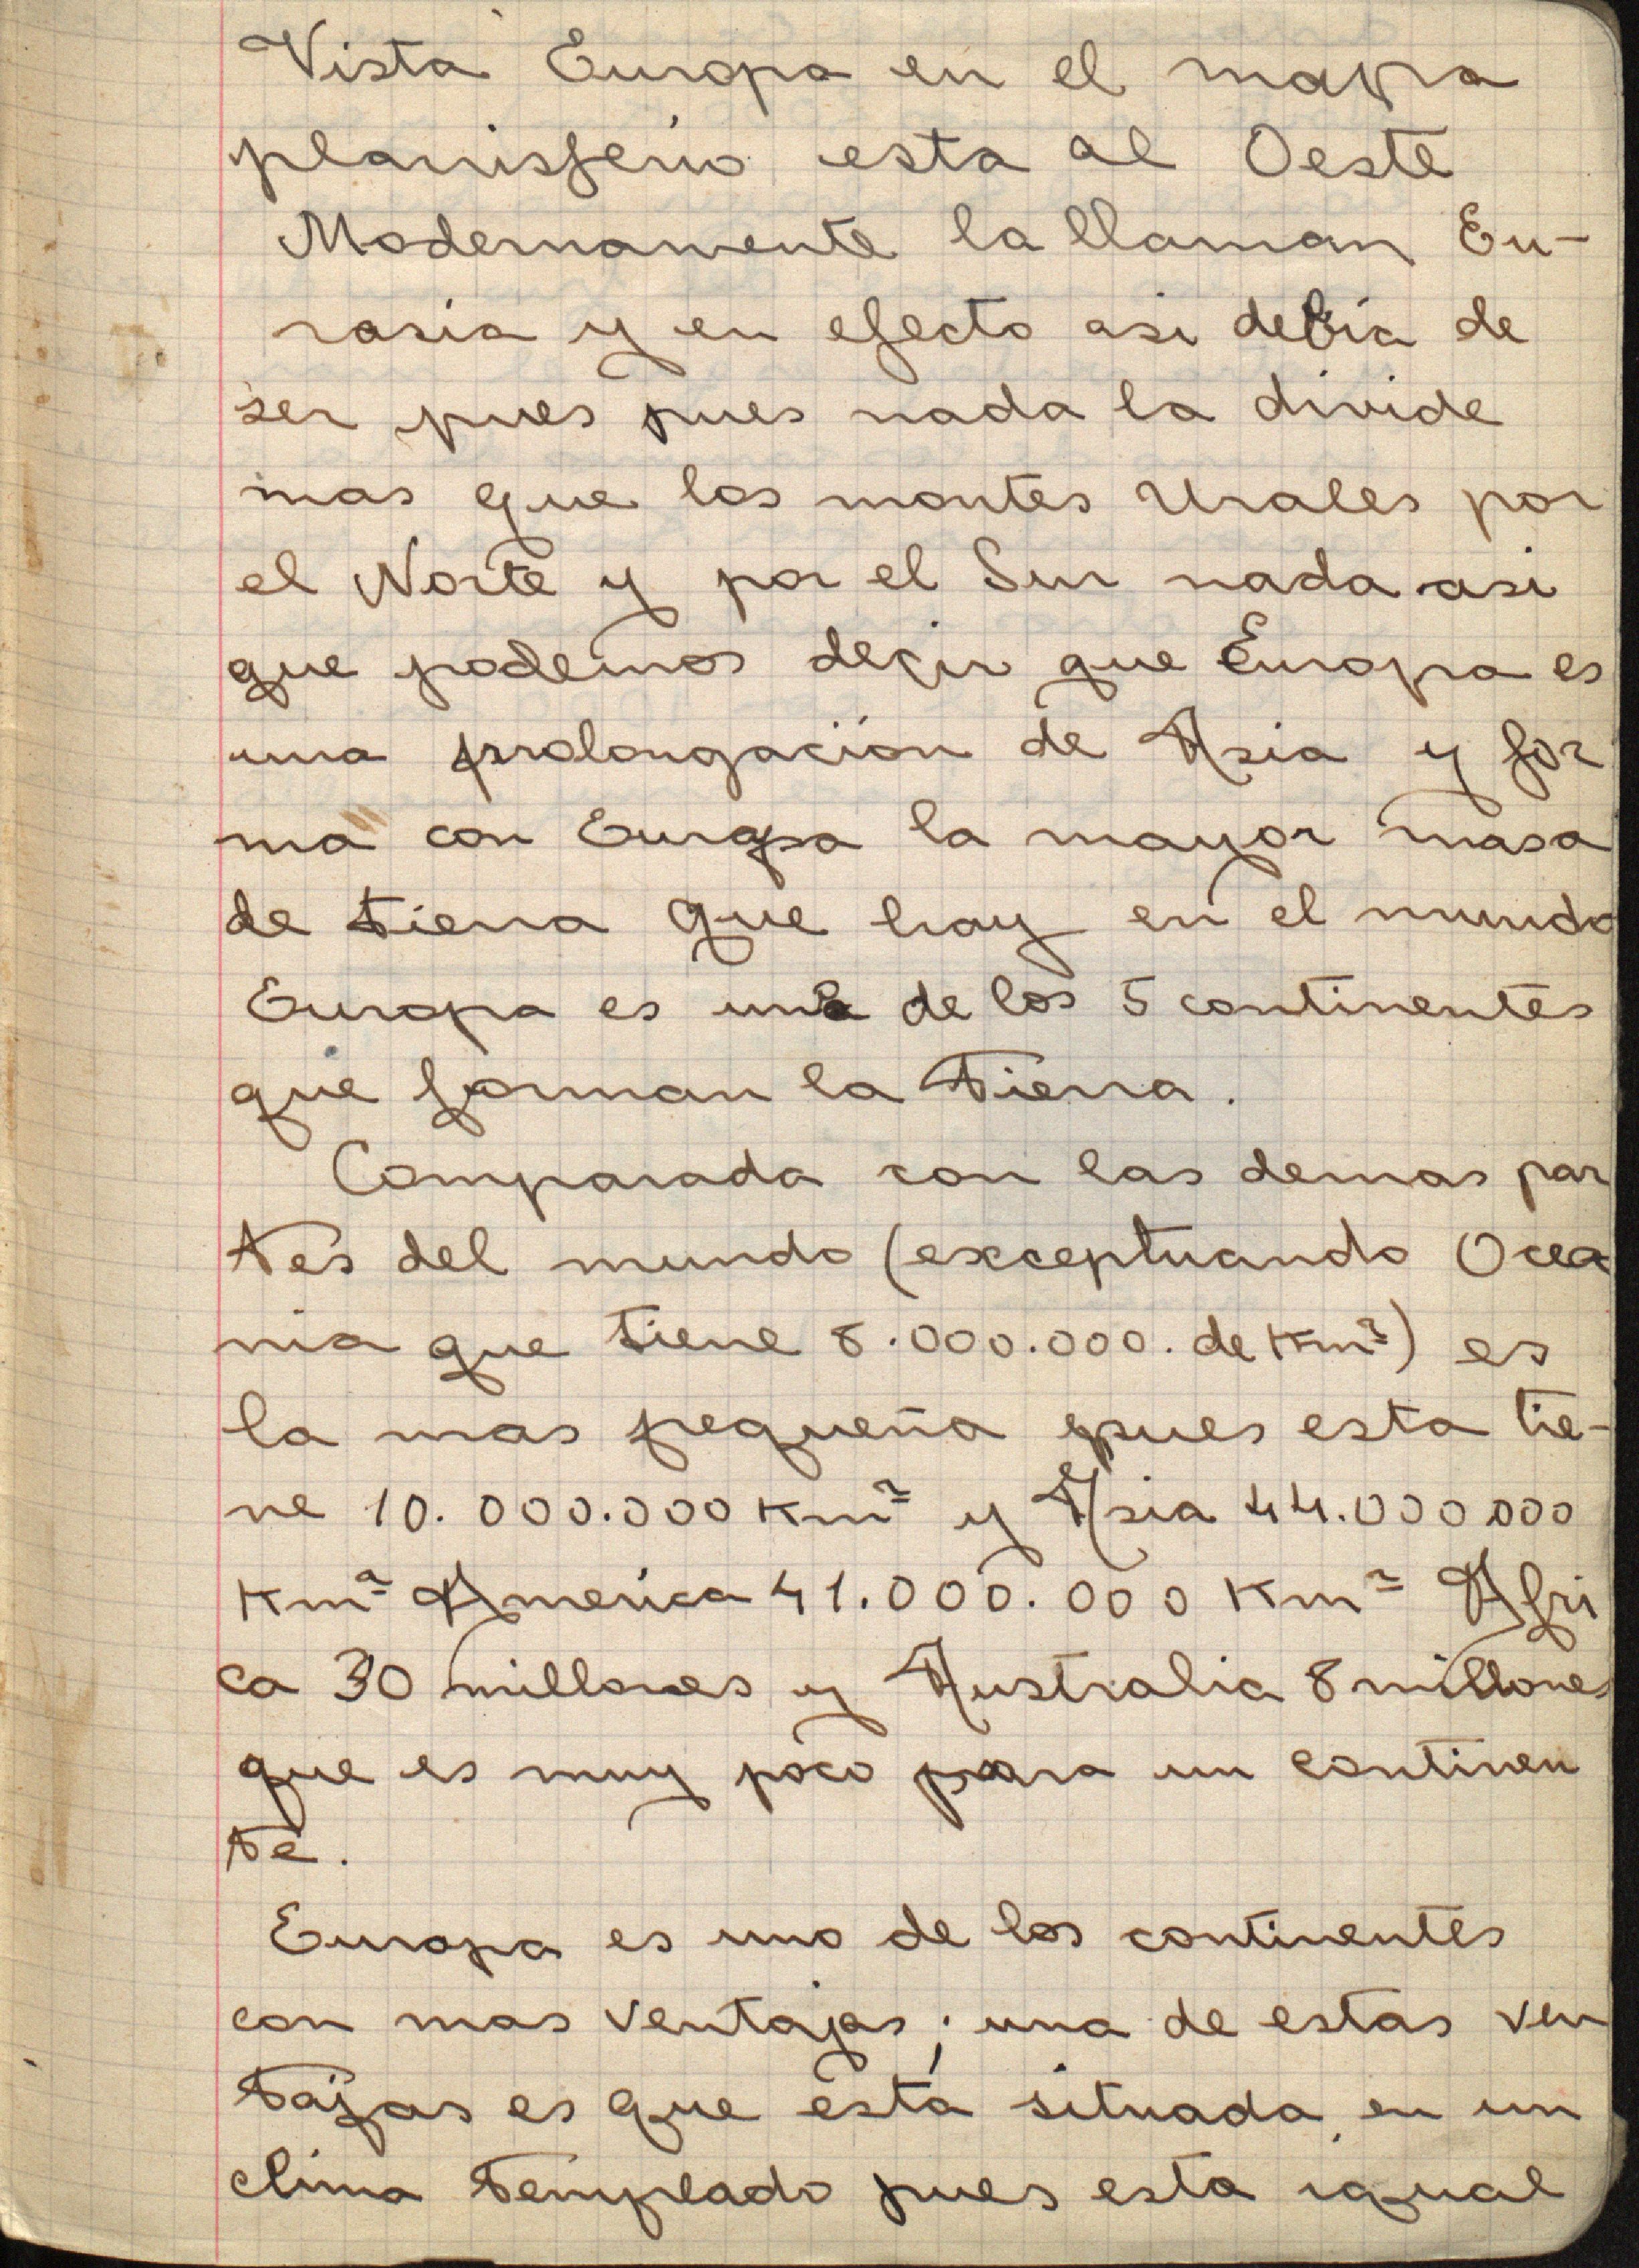 Vista Europa en el mapa
planisferio esta al Oeste
Modernamente la llaman Eu-
rasia y en efecto asi debia de
ser pues pues nada la divide
mas que los montes Urales por
el Norte y por el Sur nada asi
que podemos decir que Europa es
una prolongación de Asia y for
ma con Europa la mayor masa
de tierra que hay en el mundo
Europa es una de los 5 continentes
que forman la Tierra.
Comparada con las demas par
tes del mundo (exceptuando Ocea
nia que tiene 8.000.000. de Km²) es
la mas pequeña pues esta tie-
ne 10.000.000 Km² y Asia 44.000000
Km² America 41.000.000 Km² Afri
ca 30 millones y Australia 8 millones
que es muy poco para un continen
te.
Europa es uno de los continentes
con mas ventajas; una de estas ven
tajas es que está situada en un
clima templado pues esta igual